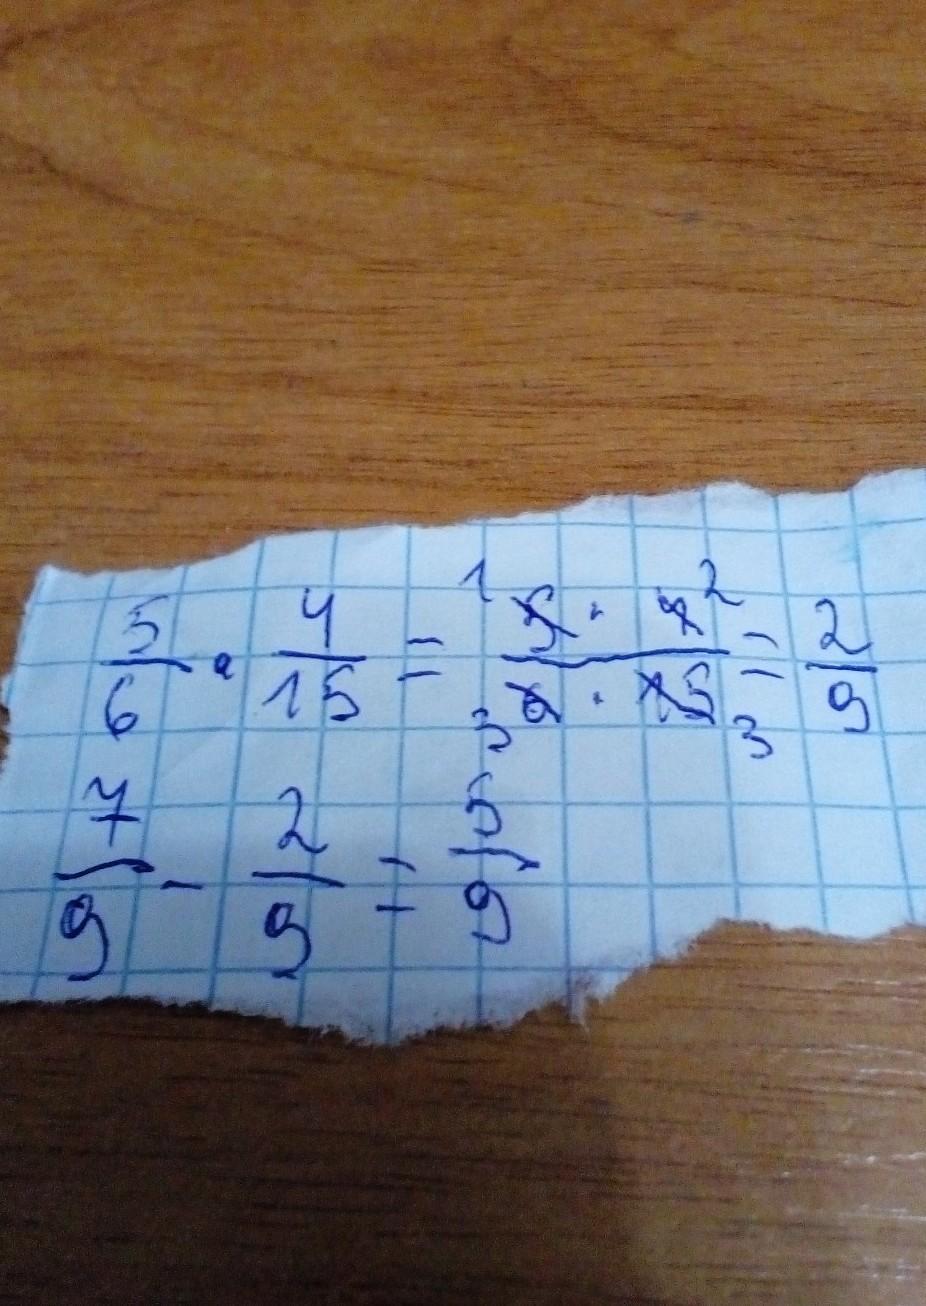 5/6 · 4/15 = 1 5 · 4 2 / 3 6 · 15 3 = 2/9
7/9 - 2/9 = 5/9